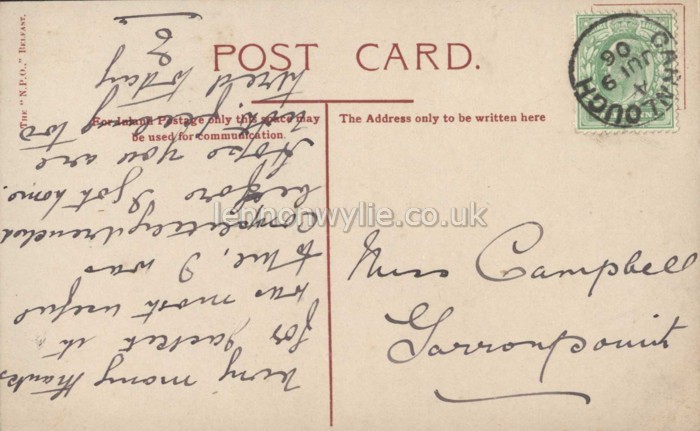 THE "N.P.O.," BELFAST.
POST CARD.
For Inland Postage only this space may
be used for communication.
The Address only to be written here
CARNLOUGH
A
JU 9
06
lennonwylie.co.uk
Miss Campbell
Garronpoint
Very many thanks
for jacket it
was most useful
to me, I was
completely drenched
before I got home.
Hope you are
not feeling too
tired today